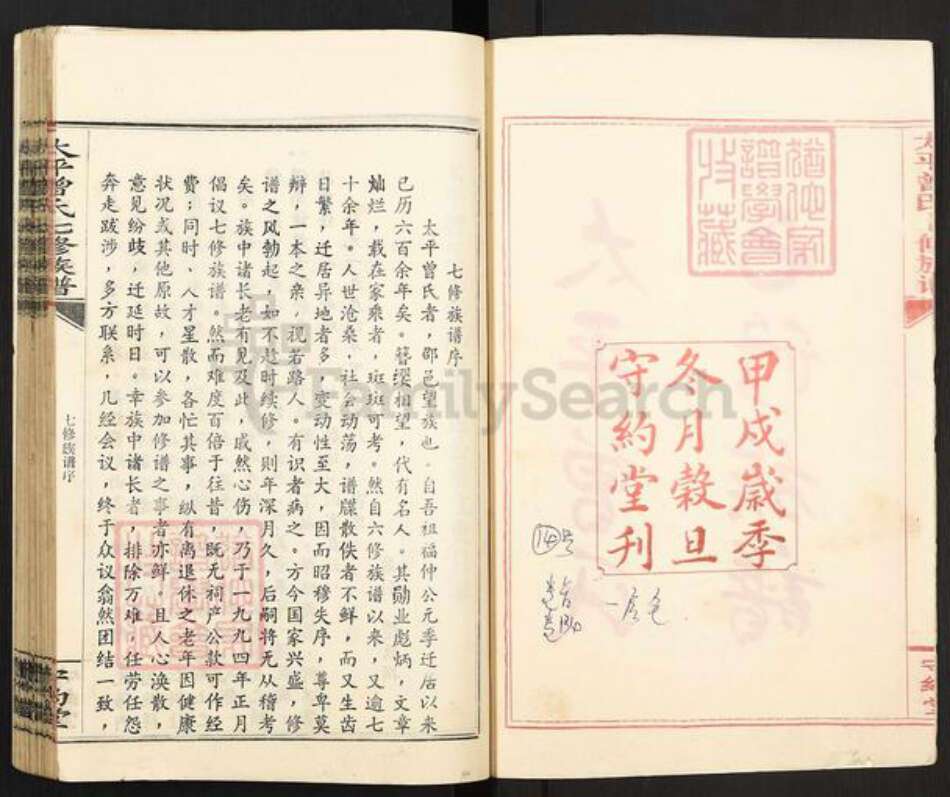 甲戌歲季
冬月穀旦
守約堂刊
14号
太平曾氏七修族谱
七修族谱序
守約堂
七修族谱序
太平曾氏者，邵邑望族也。自吾祖福仲公元季迁居以来
已历六百余年矣。簪缨相望，代有名人。其勋业彪炳，文章
灿烂，载在家乘者，斑斑可考。然自六修族谱以来，又逾七
十余年。人世沧桑，社会动荡，谱牒散佚者不鲜，而又生齿
日繁，迁居异地者多，变动性至大，因而昭穆失序，尊卑莫
辩，一本之亲，视若路人。有识者病之。方今国家兴盛，修
谱之风勃起，如不趁时续修，则年深月久，后嗣将无从稽考
矣。族中诸长老有见及此，戚然心伤，乃于一九九四年正月
倡议七修族谱。然而难度百倍于往昔，既无祠产公款可作经
费；同时、人才星散，各忙其事，纵有离退休之老年因健康
状况或其他原故，可以参加修谱之事者亦鲜。且人心涣散，
意见纷歧，迁延时日。幸族中诸长者，排除万难，任劳任怨
奔走跋涉，多方联系，几经会议，终于众议翕然团结一致，
FamilySearch